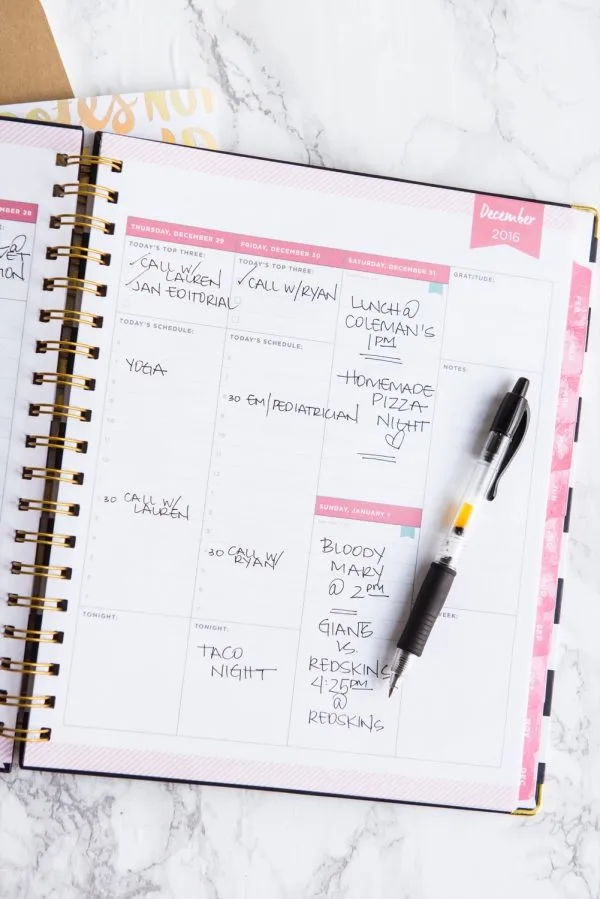 NOTES NOT
December
2016
MBER 28
@
VET
ION
THURSDAY, DECEMBER 29
TODAY'S TOP THREE:
✓CALL W/
LAUREN
✓JAN EDITORIAL
TODAY'S SCHEDULE:
YOGA
30 CALL W/
LAUREN
TONIGHT:
FRIDAY, DECEMBER 30
TODAY'S TOP THREE:
✓CALL W/RYAN
TODAY'S SCHEDULE:
30 EM/PEDIATRICIAN
30 CALL W/
RYAN
TONIGHT:
TACO
NIGHT
SATURDAY, DECEMBER 31
LUNCH@
COLEMAN'S
1PM
HOMEMADE
PIZZA
NIGHT
♡
SUNDAY, JANUARY 1
BLOODY
MARY
@ 2PM
GIANTS
VS.
REDSKINS
4:25PM
@
REDSKINS
GRATITUDE:
NOTES:
WEEK:
FEB
JUN
SEP
NOV
DEC